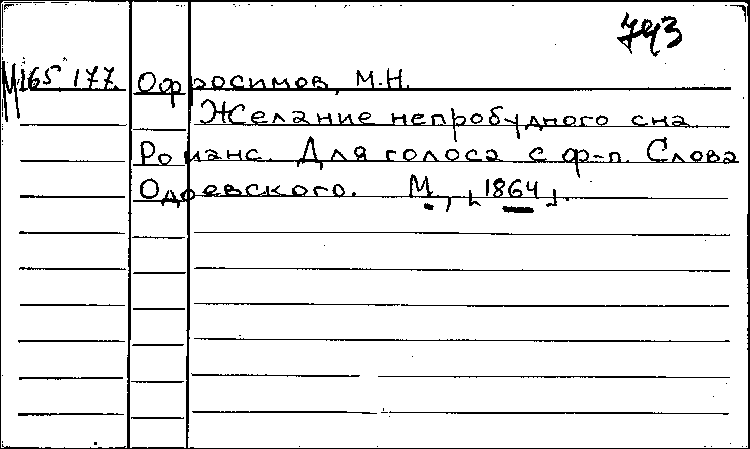 793
М165.177. Офросимов, М.Н.
Желание непробудного сна
Романс. Для голоса с ф-п. Слова
Одоевского. М., [1864].